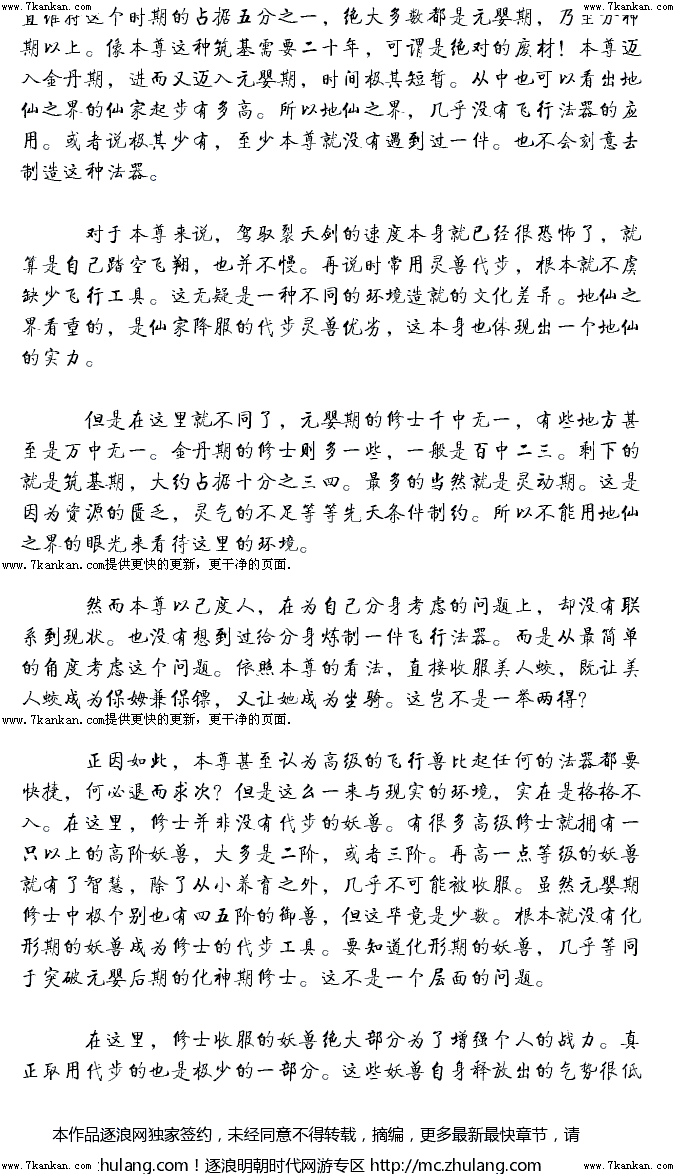 www.7kankan.com www.7kankan.com
直维持这个时期的占据五分之一，绝大多数都是元婴期，乃至分神
期以上。像本尊这种筑基需要二十年，可谓是绝对的废材！本尊迈
入金丹期，进而又迈入元婴期，时间极其短暂。从中也可以看出地
仙之界的仙家起步有多高。所以地仙之界，几乎没有飞行法器的应
用。或者说极其少有，至少本尊就没有遇到过一件。也不会刻意去
制造这种法器。
对于本尊来说，驾驭裂天剑的速度本身就已经很恐怖了，就
算是自己踏空飞翔，也并不慢。再说时常用灵兽代步，根本就不虞
缺少飞行工具。这无疑是一种不同的环境造就的文化差异。地仙之
界看重的，是仙家降服的代步灵兽优劣，这本身也体现出一个地仙
的实力。
但是在这里就不同了，元婴期的修士千中无一，有些地方甚
至是万中无一。金丹期的修士则多一些，一般是百中二三。剩下的
就是筑基期，大约占据十分之三四。最多的当然就是灵动期。这是
因为资源的匮乏，灵气的不足等等先天条件制约。所以不能用地仙
之界的眼光来看待这里的环境。
www.7kankan.com提供更快的更新，更干净的页面.
然而本尊以己度人，在为自己分身考虑的问题上，却没有联
系到现状。也没有想到过给分身炼制一件飞行法器。而是从最简单
的角度考虑这个问题。依照本尊的看法，直接收服美人蛟，既让美
人蛟成为保姆兼保镖，又让她成为坐骑。这岂不是一举两得？
www.7kankan.com提供更快的更新，更干净的页面.
正因如此，本尊甚至认为高级的飞行兽比起任何的法器都要
快捷，何必退而求次？但是这么一来与现实的环境，实在是格格不
入。在这里，修士并非没有代步的妖兽。有很多高级修士就拥有一
只以上的高阶妖兽，大多是二阶，或者三阶。再高一点等级的妖兽
就有了智慧，除了从小养育之外，几乎不可能被收服。虽然元婴期
修士中极个别也有四五阶的御兽，但这毕竟是少数。根本就没有化
形期的妖兽成为修士的代步工具。要知道化形期的妖兽，几乎等同
于突破元婴后期的化神期修士。这不是一个层面的问题。
在这里，修士收服的妖兽绝大部分为了增强个人的战力。真
正取用代步的也是极少的一部分。这些妖兽自身释放出的气势很低
本作品逐浪网独家签约，未经同意不得转载，摘编，更多最新最快章节，请
www.7kankan.com zhulang.com！逐浪明朝时代网游专区 http://mc.zhulang.com www.7kankan.com